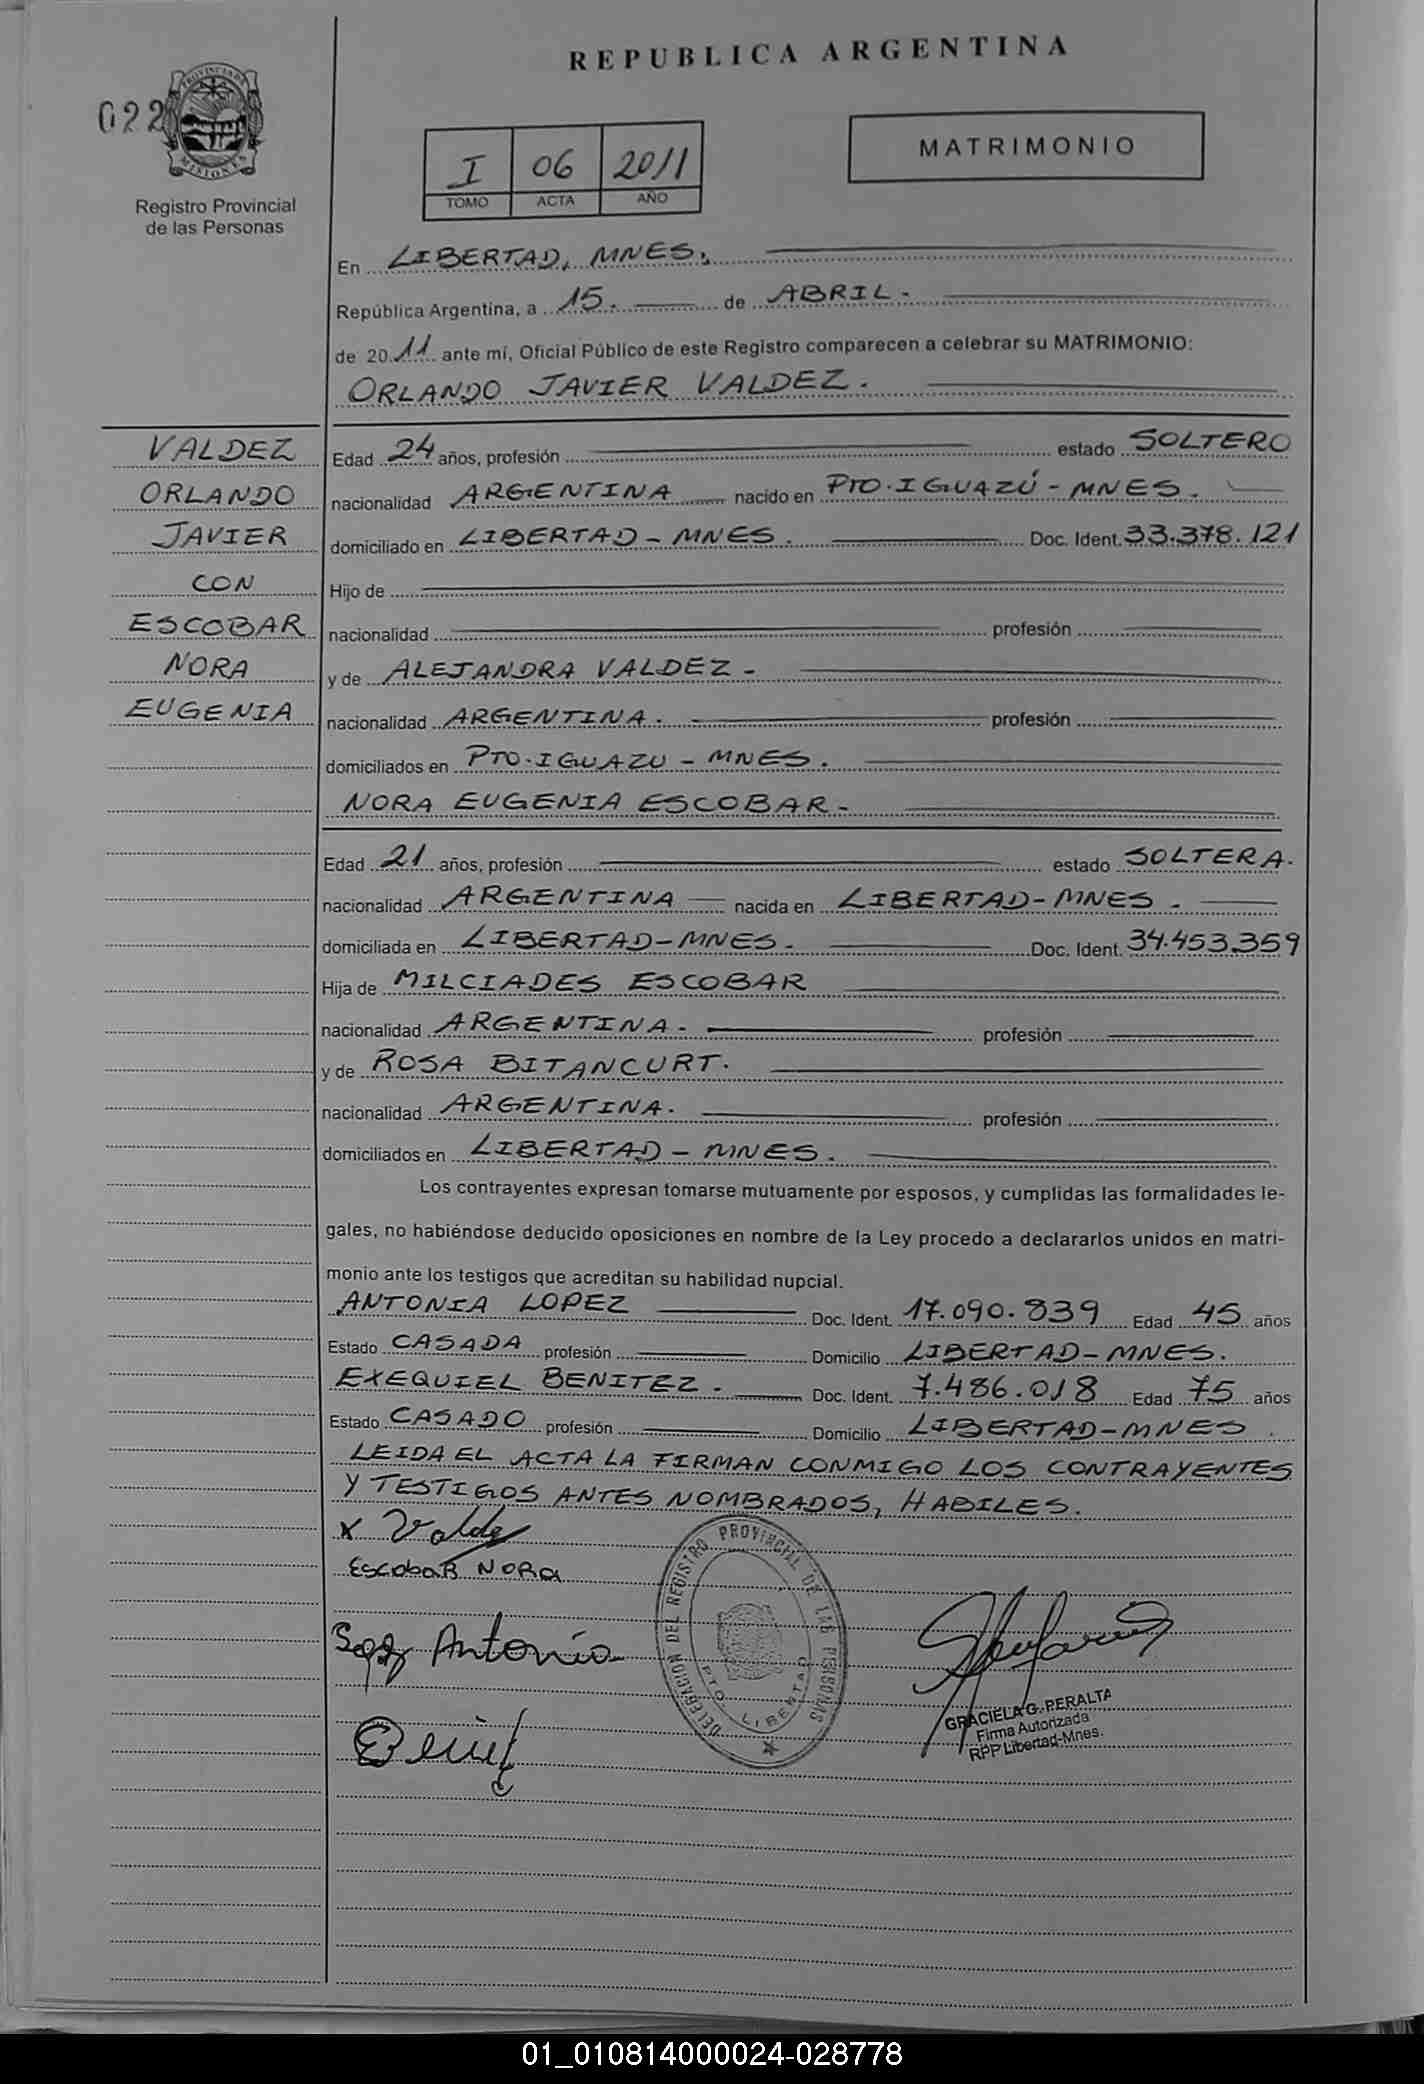 REPUBLICA ARGENTINA
022
PROVINCIA DE MISIONES
Registro Provincial
de las Personas
I 06 2011
TOMO ACTA AÑO
MATRIMONIO
En LIBERTAD, MNES.
República Argentina, a 15. de ABRIL.
de 2011 ante mí, Oficial Público de este Registro comparecen a celebrar su MATRIMONIO:
ORLANDO JAVIER VALDEZ.
VALDEZ
ORLANDO
JAVIER
CON
ESCOBAR
NORA
EUGENIA
Edad 24 años, profesión estado SOLTERO
nacionalidad ARGENTINA nacido en PTO. IGUAZÚ - MNES.
domiciliado en LIBERTAD - MNES. Doc. Ident. 33.378.121
Hijo de
nacionalidad profesión
y de ALEJANDRA VALDEZ.-
nacionalidad ARGENTINA. profesión
domiciliados en PTO. IGUAZU - MNES.
NORA EUGENIA ESCOBAR.-
Edad 21 años, profesión estado SOLTERA.
nacionalidad ARGENTINA nacida en LIBERTAD-MNES.
domiciliada en LIBERTAD-MNES. Doc. Ident. 34.453.359
Hija de MILCIADES ESCOBAR
nacionalidad ARGENTINA. profesión
y de ROSA BITANCURT.
nacionalidad ARGENTINA. profesión
domiciliados en LIBERTAD - MNES.
Los contrayentes expresan tomarse mutuamente por esposos, y cumplidas las formalidades le-
gales, no habiéndose deducido oposiciones en nombre de la Ley procedo a declararlos unidos en matri-
monio ante los testigos que acreditan su habilidad nupcial.
ANTONIA LOPEZ Doc. Ident. 17.090.839 Edad 45 años
Estado CASADA profesión Domicilio LIBERTAD-MNES.
EXEQUIEL BENITEZ. Doc. Ident. 7.486.018 Edad 75 años
Estado CASADO profesión Domicilio LIBERTAD-MNES.
LEIDA EL ACTA LA FIRMAN CONMIGO LOS CONTRAYENTES
Y TESTIGOS ANTES NOMBRADOS, HABILES.
x Valdez
EscobaR NORa
Antonia
DELEGACION DEL REGISTRO PROVINCIAL DE LAS PERSONAS
PTO. LIBERTAD
GRACIELA G. PERALTA
Firma Autorizada
RPP Libertad-Mnes.
01_010814000024-028778